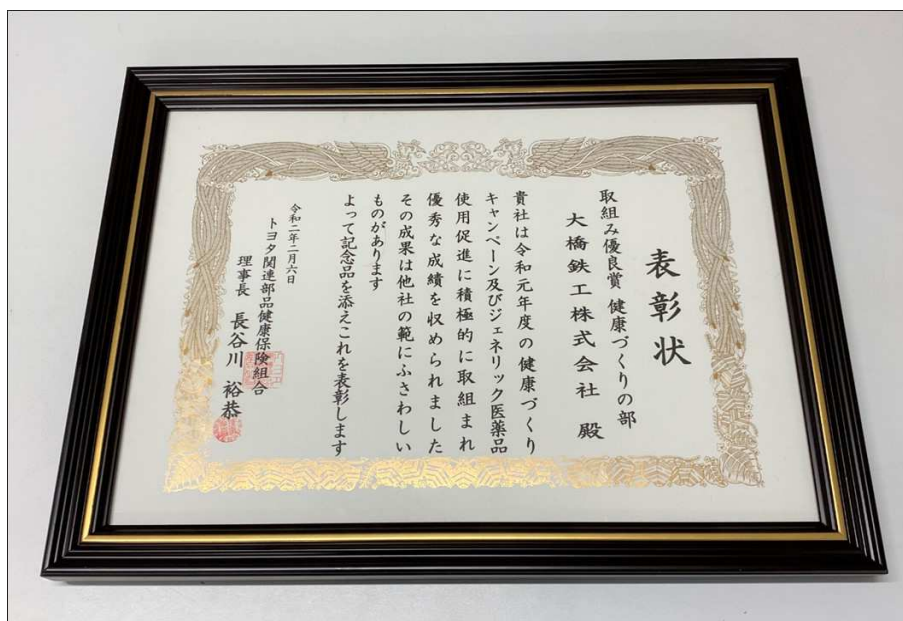 表彰状
取組み優良賞 健康づくりの部
大橋鉄工株式会社 殿
貴社は令和元年度の健康づくり
キャンペーン及びジェネリック医薬品
使用促進に積極的に取組まれ
優秀な成績を収められました
その成果は他社の範にふさわしい
ものがあります
よって記念品を添えこれを表彰します
令和二年二月六日
トヨタ関連部品健康保険組合
理事長 長谷川 裕恭